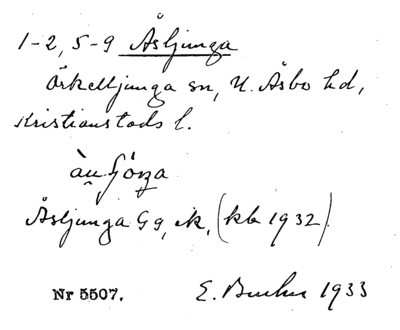 1-2, 5-9 Åsljunga
Örkelljunga sn, N. Åsbo hd,
Kristianstads l.
Åsljunga Gg, ek, (kb 1932)
Nr 5507. E. 1933